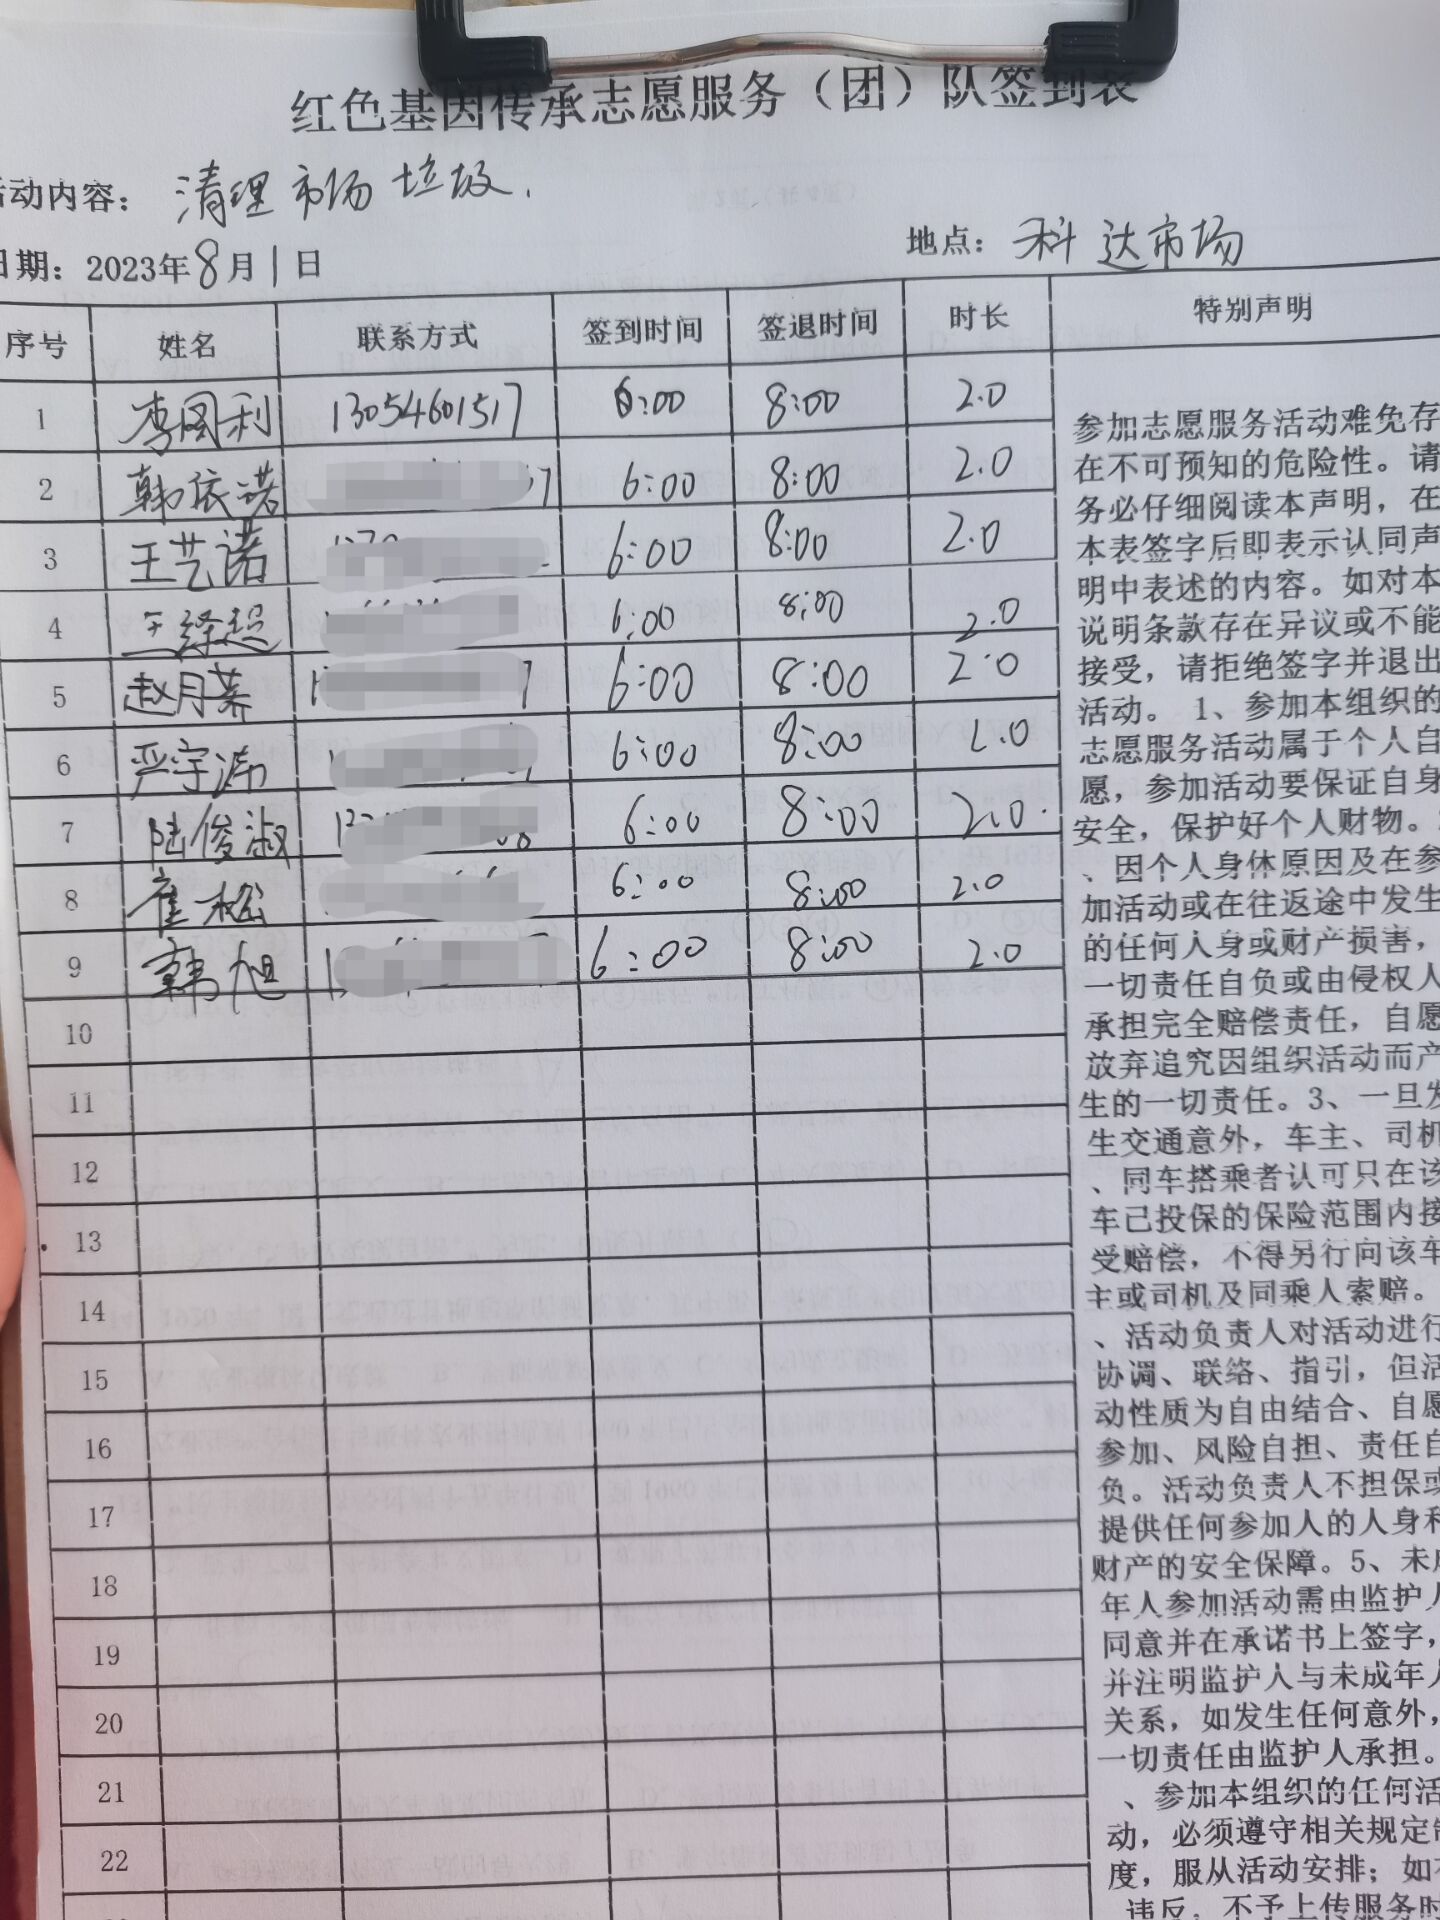 红色基因传承志愿服务（团）队签到表
活动内容： 清理市场垃圾.
日期：2023年8月1日 地点：科达市场
序号 姓名 联系方式 签到时间 签退时间 时长 特别声明
1 李国利 13054601517 6:00 8:00 2.0
2 韩依诺 6:00 8:00 2.0
3 王艺诺 6:00 8:00 2.0
4 6:00 8:00 2.0
5 赵月 6:00 8:00 2.0
6 严宇涛 6:00 8:00 2.0
7 陆俊淑 6:00 8:00 2.0
8 崔松 6:00 8:00 2.0
9 韩旭 6:00 8:00 2.0
10
11
12
13
14
15
16
17
18
19
20
21
22
参加志愿服务活动难免存
在不可预知的危险性。请
务必仔细阅读本声明，在
本表签字后即表示认同声
明中表述的内容。如对本
说明条款存在异议或不能
接受，请拒绝签字并退出
活动。1、参加本组织的
志愿服务活动属于个人自
愿，参加活动要保证自身
安全，保护好个人财物。
、因个人身体原因及在参
加活动或在往返途中发生
的任何人身或财产损害，
一切责任自负或由侵权人
承担完全赔偿责任，自愿
放弃追究因组织活动而产
生的一切责任。3、一旦发
生交通意外，车主、司机
、同车搭乘者认可只在该
车已投保的保险范围内接
受赔偿，不得另行向该车
主或司机及同乘人索赔。
、活动负责人对活动进行
协调、联络、指引，但活
动性质为自由结合、自愿
参加、风险自担、责任自
负。活动负责人不担保或
提供任何参加人的人身和
财产的安全保障。5、未成
年人参加活动需由监护人
同意并在承诺书上签字，
并注明监护人与未成年人
关系，如发生任何意外，
一切责任由监护人承担。
、参加本组织的任何活
动，必须遵守相关规定制
度，服从活动安排；如有
违反，不予上传服务时